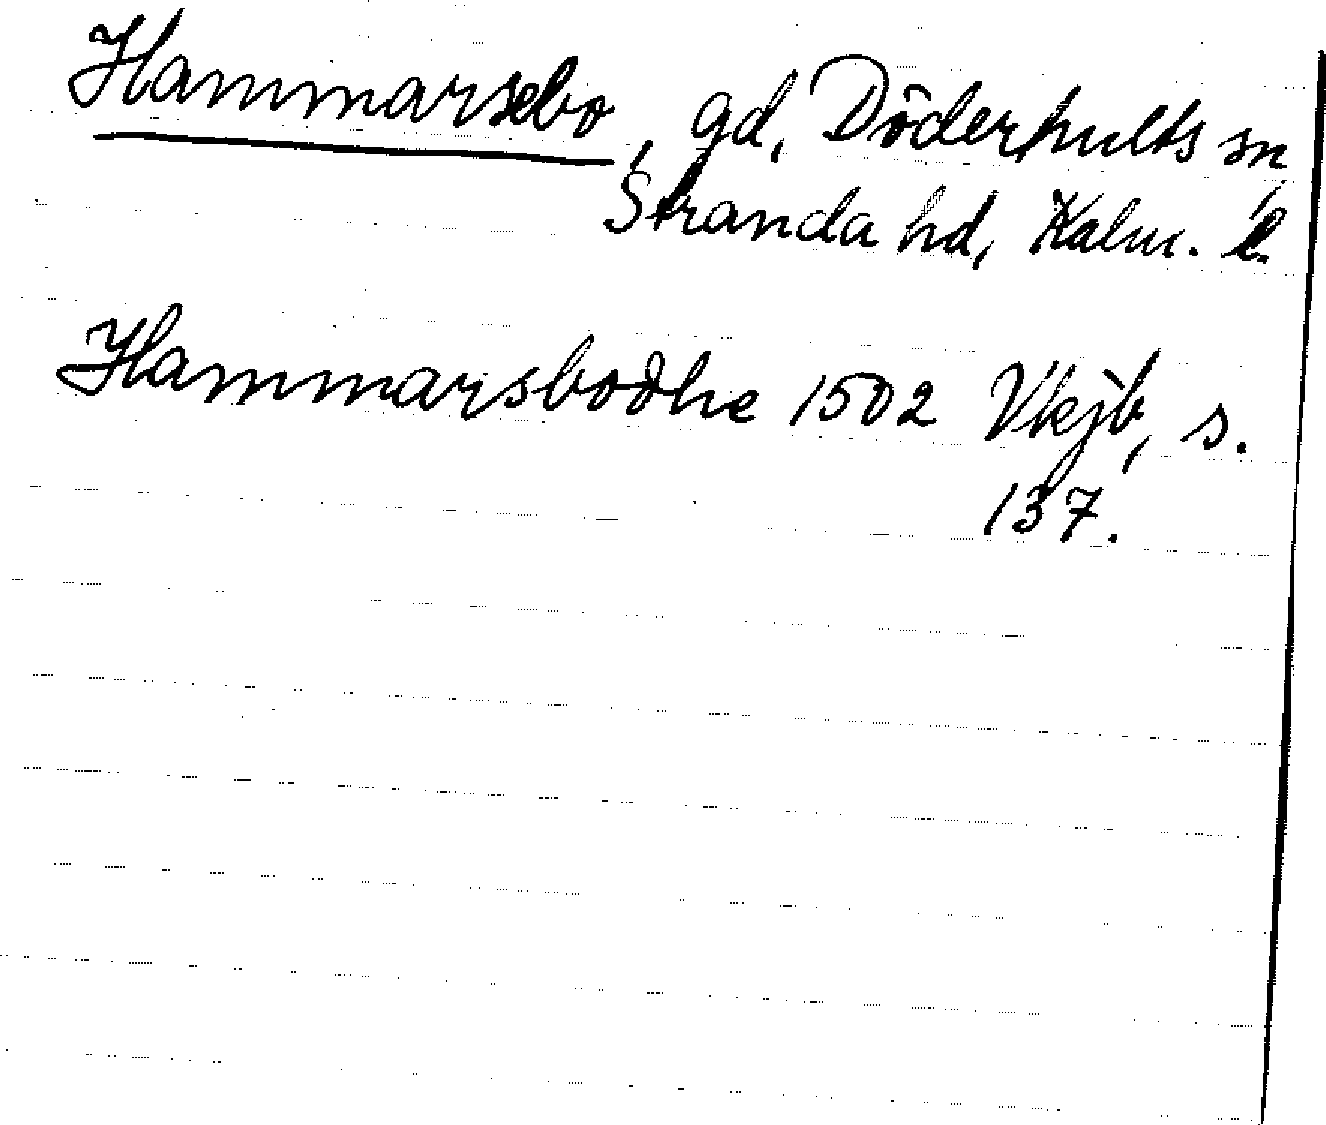 Hammarsebo, gd, Döderhults sn,
Stranda hd, Kalm. l.
Hammarsbodhe 1502 Vkjb, s.
137.